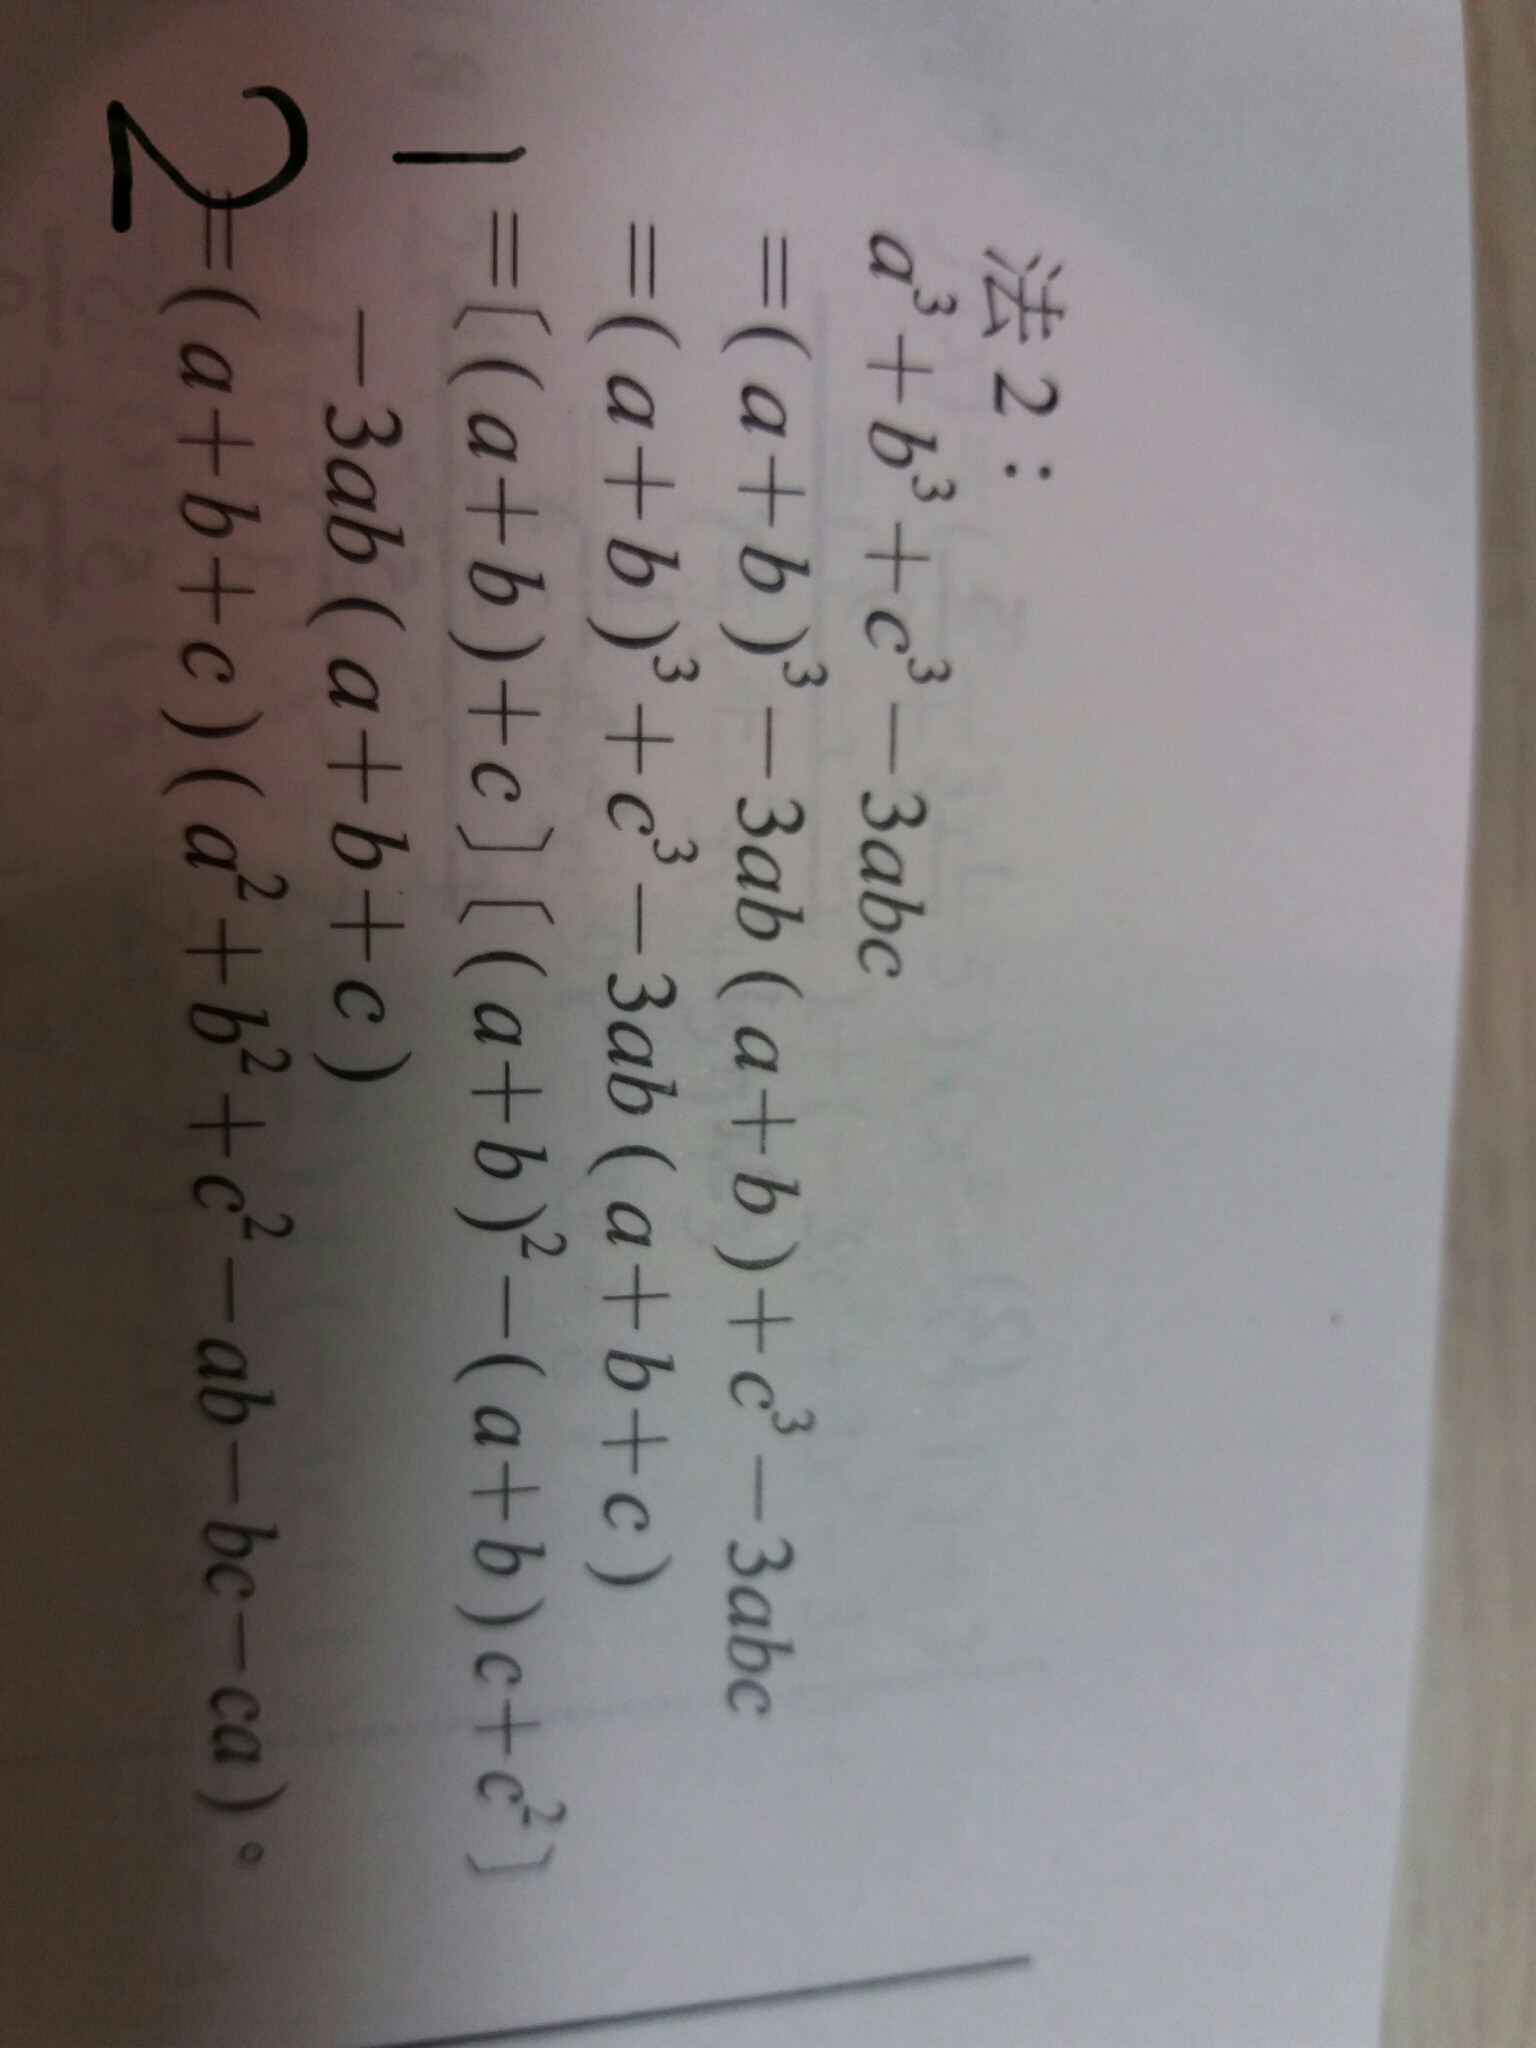 法2：
a³+b³+c³−3abc
=(a+b)³−3ab(a+b)+c³−3abc
=(a+b)³+c³−3ab(a+b+c)
1 =[(a+b)+c][(a+b)²−(a+b)c+c²]
−3ab(a+b+c)
2 =(a+b+c)(a²+b²+c²−ab−bc−ca)。